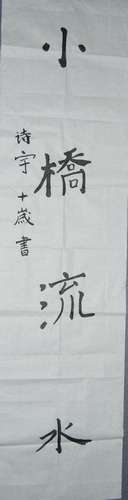 小橋流水
诗宇 十歲書